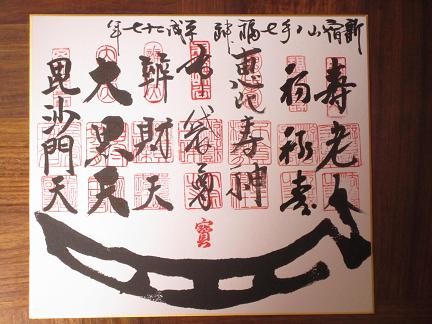 新宿山ノ手七福神 平成二十七年
寿老人
福禄寿
恵比寿神
布袋尊
辨財天
大黒天
毘沙門天
寶